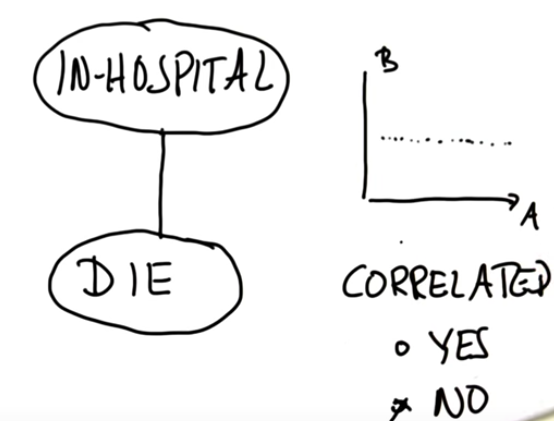 IN-HOSPITAL
DIE
B
A
CORRELATED
YES
NO